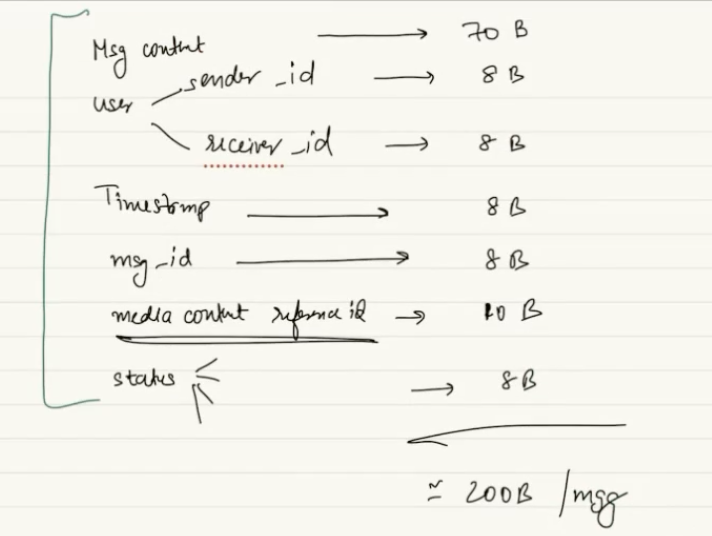 Msg content → 70 B
user sender_id → 8 B
receiver_id → 8 B
Timestamp → 8 B
msg_id → 8 B
media content reference id → 10 B
status → 8 B
≃ 200B /msg